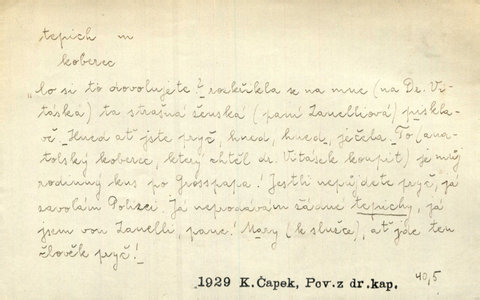 tepich m
koberec
„Co si to dovolujete? rozkřikla se na mne (na Dr. Vi-
táska) ta strašná ženská (paní Zanelliová) pisklа-
vě. Hned ať jste pryč, hned, hned, ječela. To (ana-
tolský koberec, který chtěl dr. Vitásek koupit) je můj
rodinný kus po Grosspapa! Jestli nepůjdete pryč, já
zavolám Polizei. Já neprodávám žádné tepichy, já
jsem von Zanelli, pane! Mary (k služce), ať jde ten
člověk pryč!
1929 K. Čapek, Pov. z dr. kap.
40,5